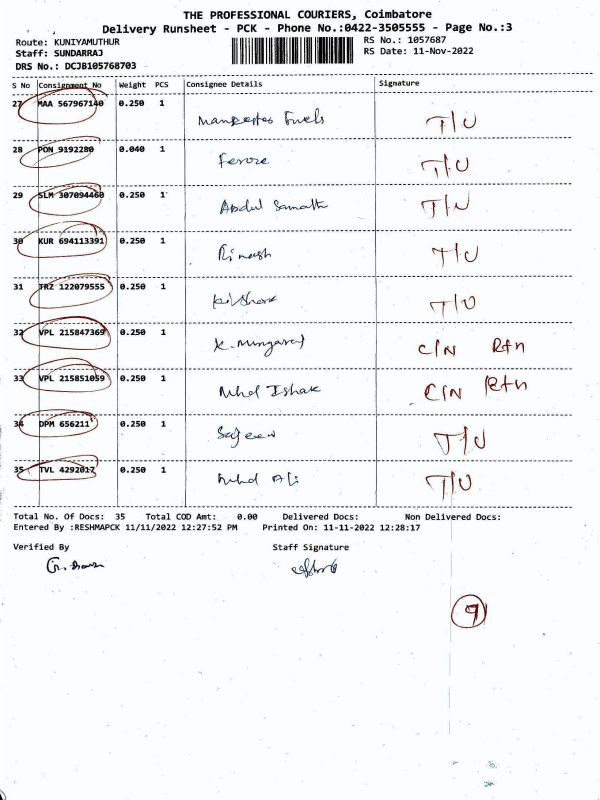 THE PROFESSIONAL COURIERS, Coimbatore
Delivery Runsheet - PCK - Phone No.:0422-3505555 - Page No.:3
Route: KUNIYAMUTHUR RS No.: 1057687
Staff: SUNDARRAJ RS Date: 11-Nov-2022
DRS No.: DCJB105768703
S No Consignment No Weight PCS Consignee Details Signature
27 MAA 567967140 0.250 1 Fuels T/U
28 PON 9192280 0.040 1 Feroze T/U
29 SLM 307094460 0.250 1 Abdul T/U
30 KUR 694113391 0.250 1 Rinash T/U
31 TRZ 122079555 0.250 1 T/U
32 VPL 215847369 0.250 1 C/N Rtn
33 VPL 215851059 0.250 1 Mhd Ishak C/N Rtn
34 DPM 656211 0.250 1 Sajeev T/U
35 TVL 4292017 0.250 1 Mhd Ali T/U
Total No. Of Docs: 35 Total COD Amt: 0.00 Delivered Docs: Non Delivered Docs:
Entered By :RESHMAPCK 11/11/2022 12:27:52 PM Printed On: 11-11-2022 12:28:17
Verified By Staff Signature
9